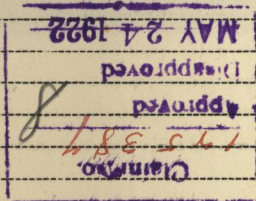 Claim No.
Approved
Disapproved
MAY 24 1922
8